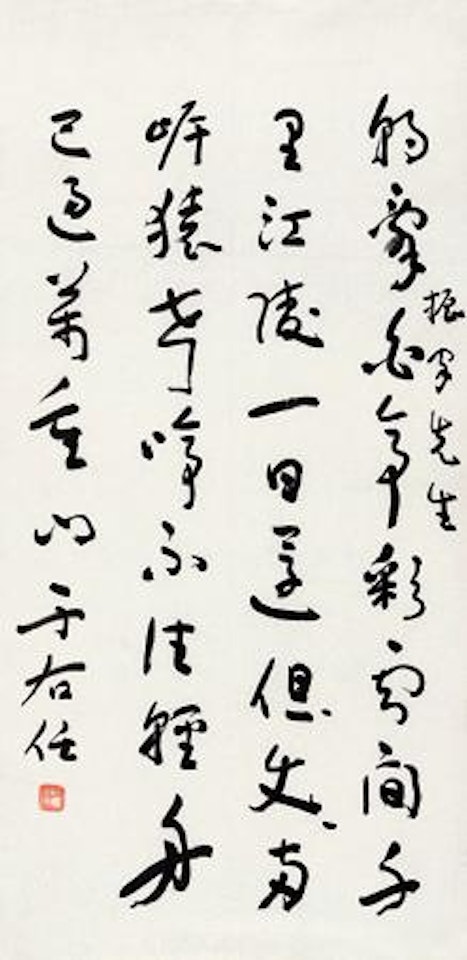 朝辭白帝彩雲間千
先生
里江陵一日還但兩
岸猿聲啼不住輕舟
已過萬重山于右任